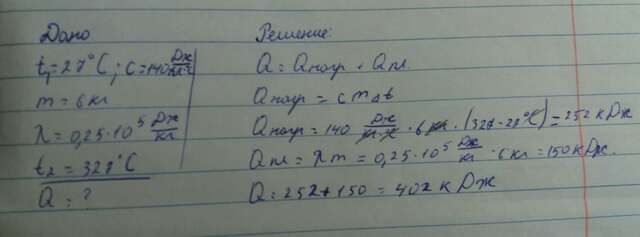 Дано
t₁ = 27°C; c = 140 Дж/кг·°C
m = 6 кг
λ = 0,25·10⁵ Дж/кг
t₂ = 327°C
Q = ?
Решение:
Q = Qнагр + Qпл.
Qнагр = cmΔt
Qнагр = 140 Дж/кг·°C · 6 кг · (327-27°C) = 252 кДж
Qпл = λm = 0,25·10⁵ Дж/кг · 6 кг = 150 кДж.
Q = 252 + 150 = 402 кДж